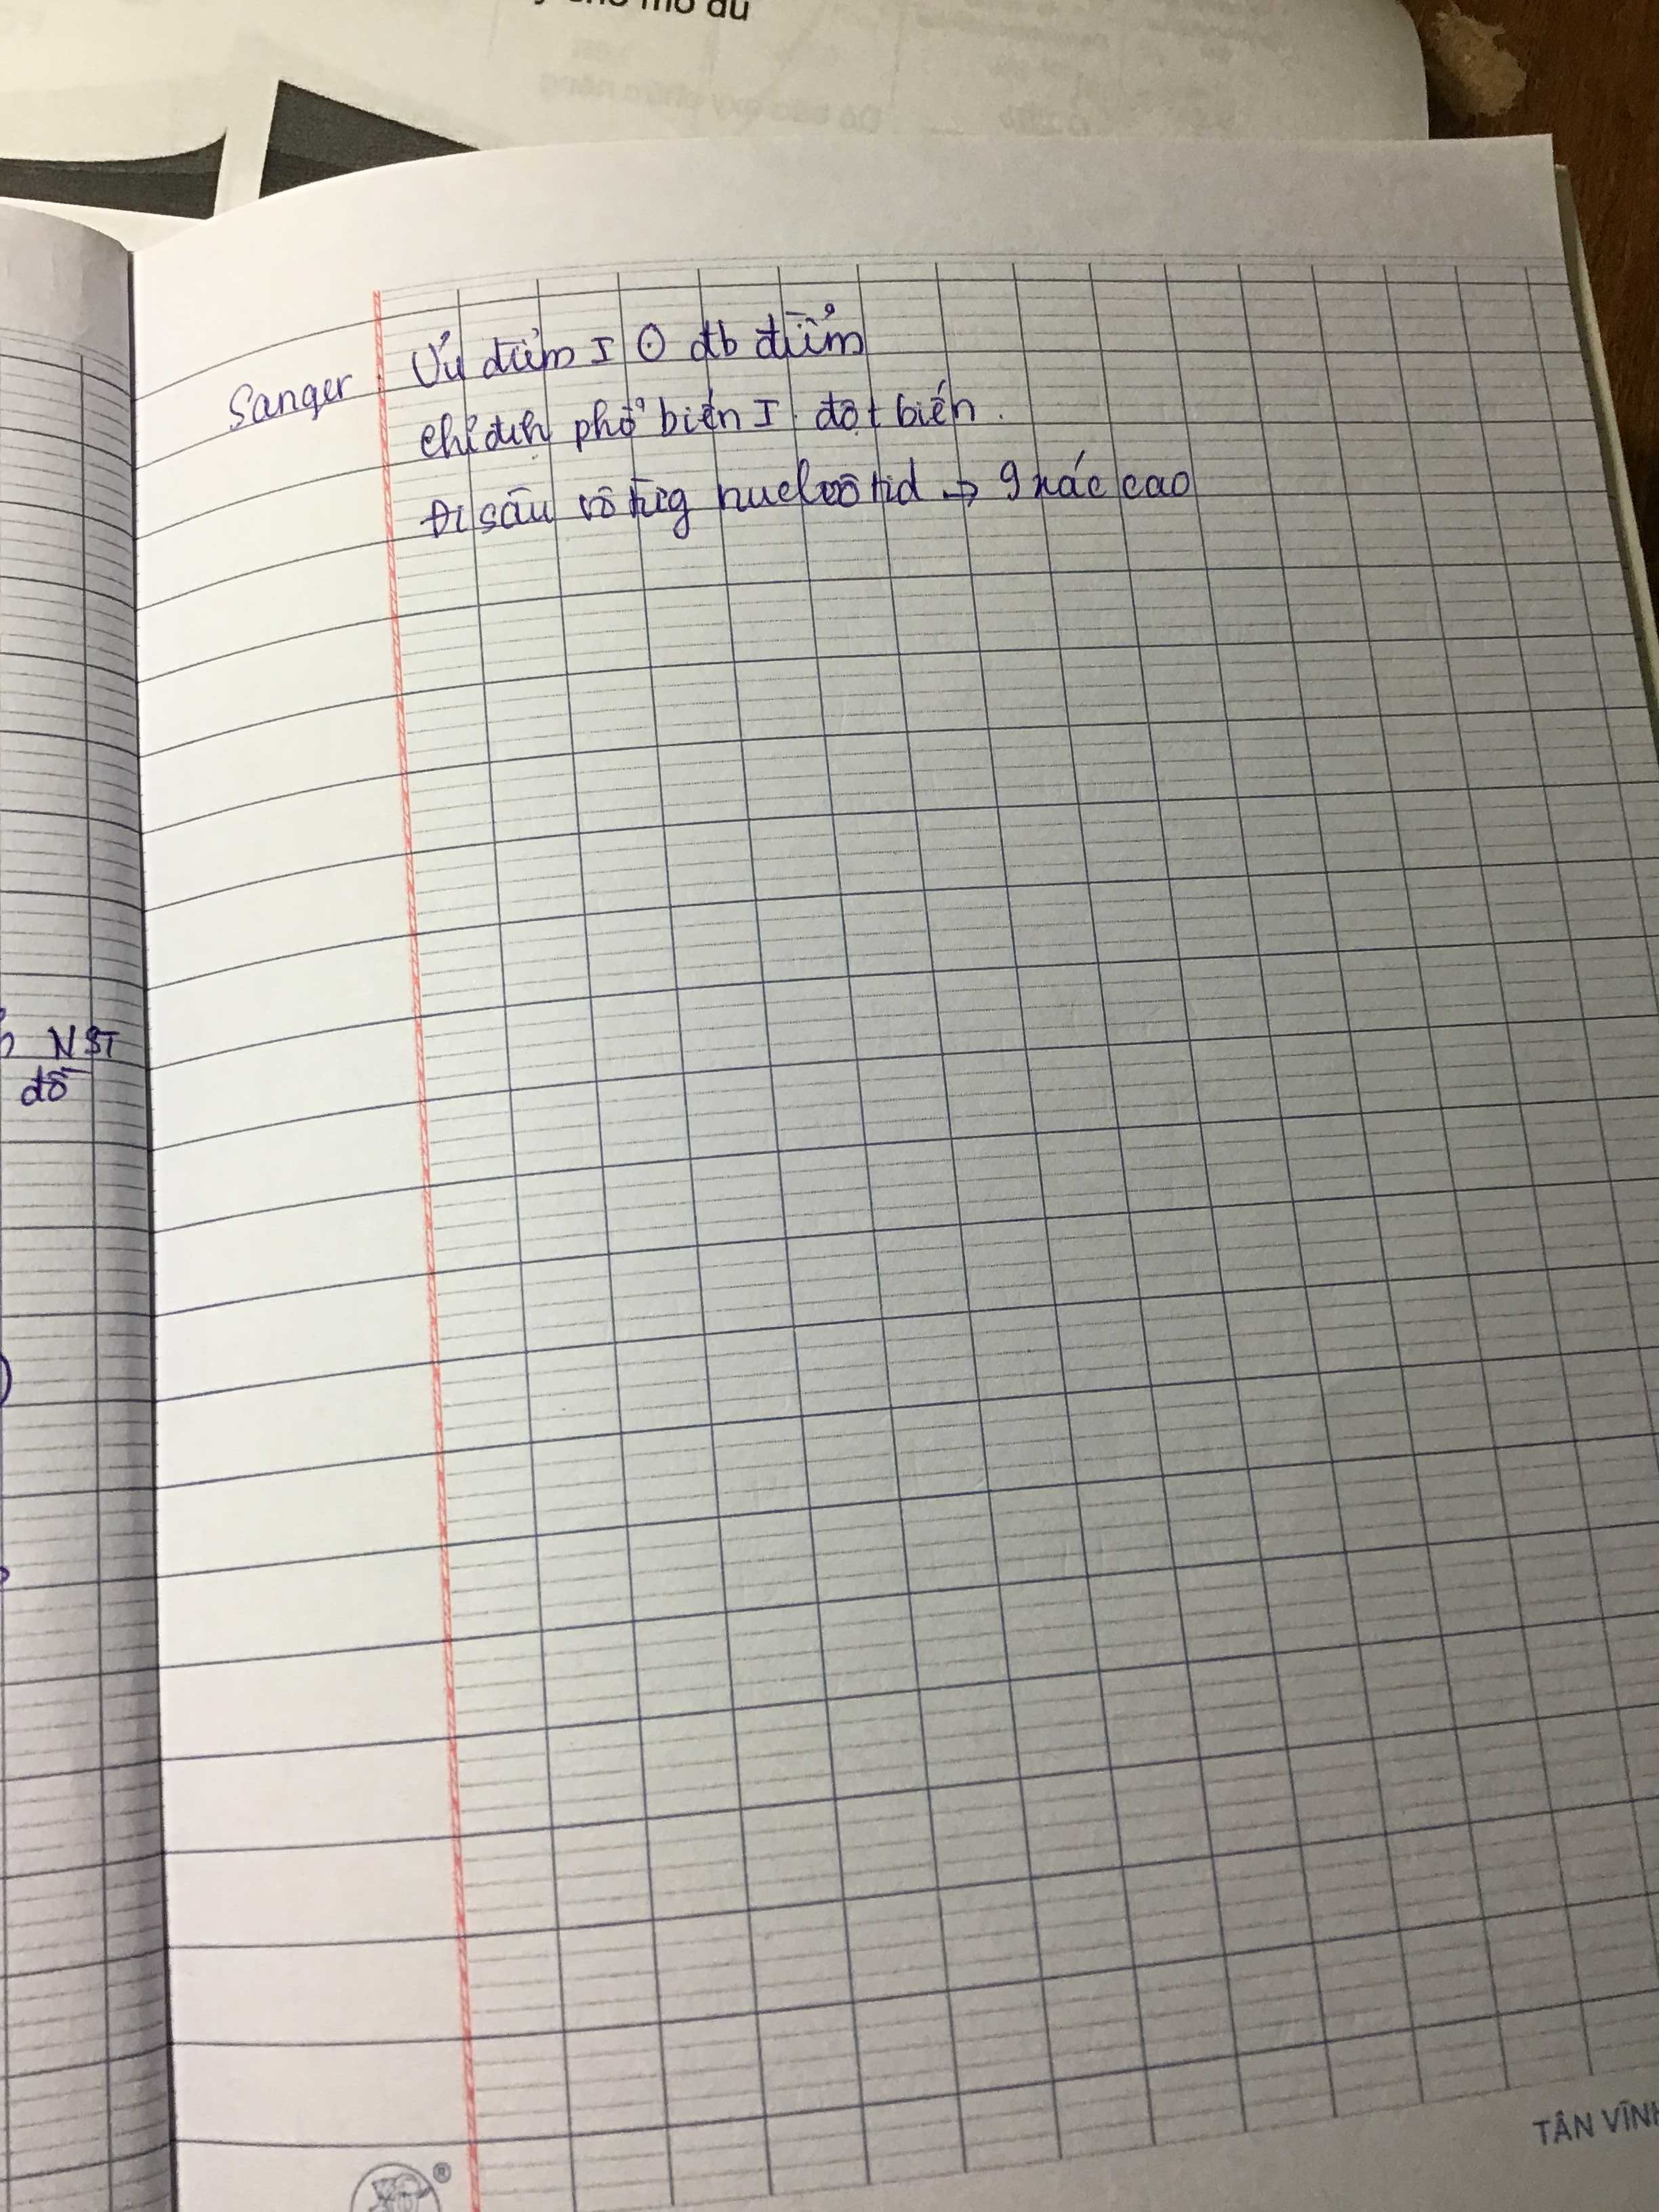 mô du
Sanger : Ưu điểm I ⊙ đb điểm
chỉ định phổ biến I đột biến.
Đi sâu vô từg nucleotid → 9 xác cao
NST
đồ
TÂN VĨNH